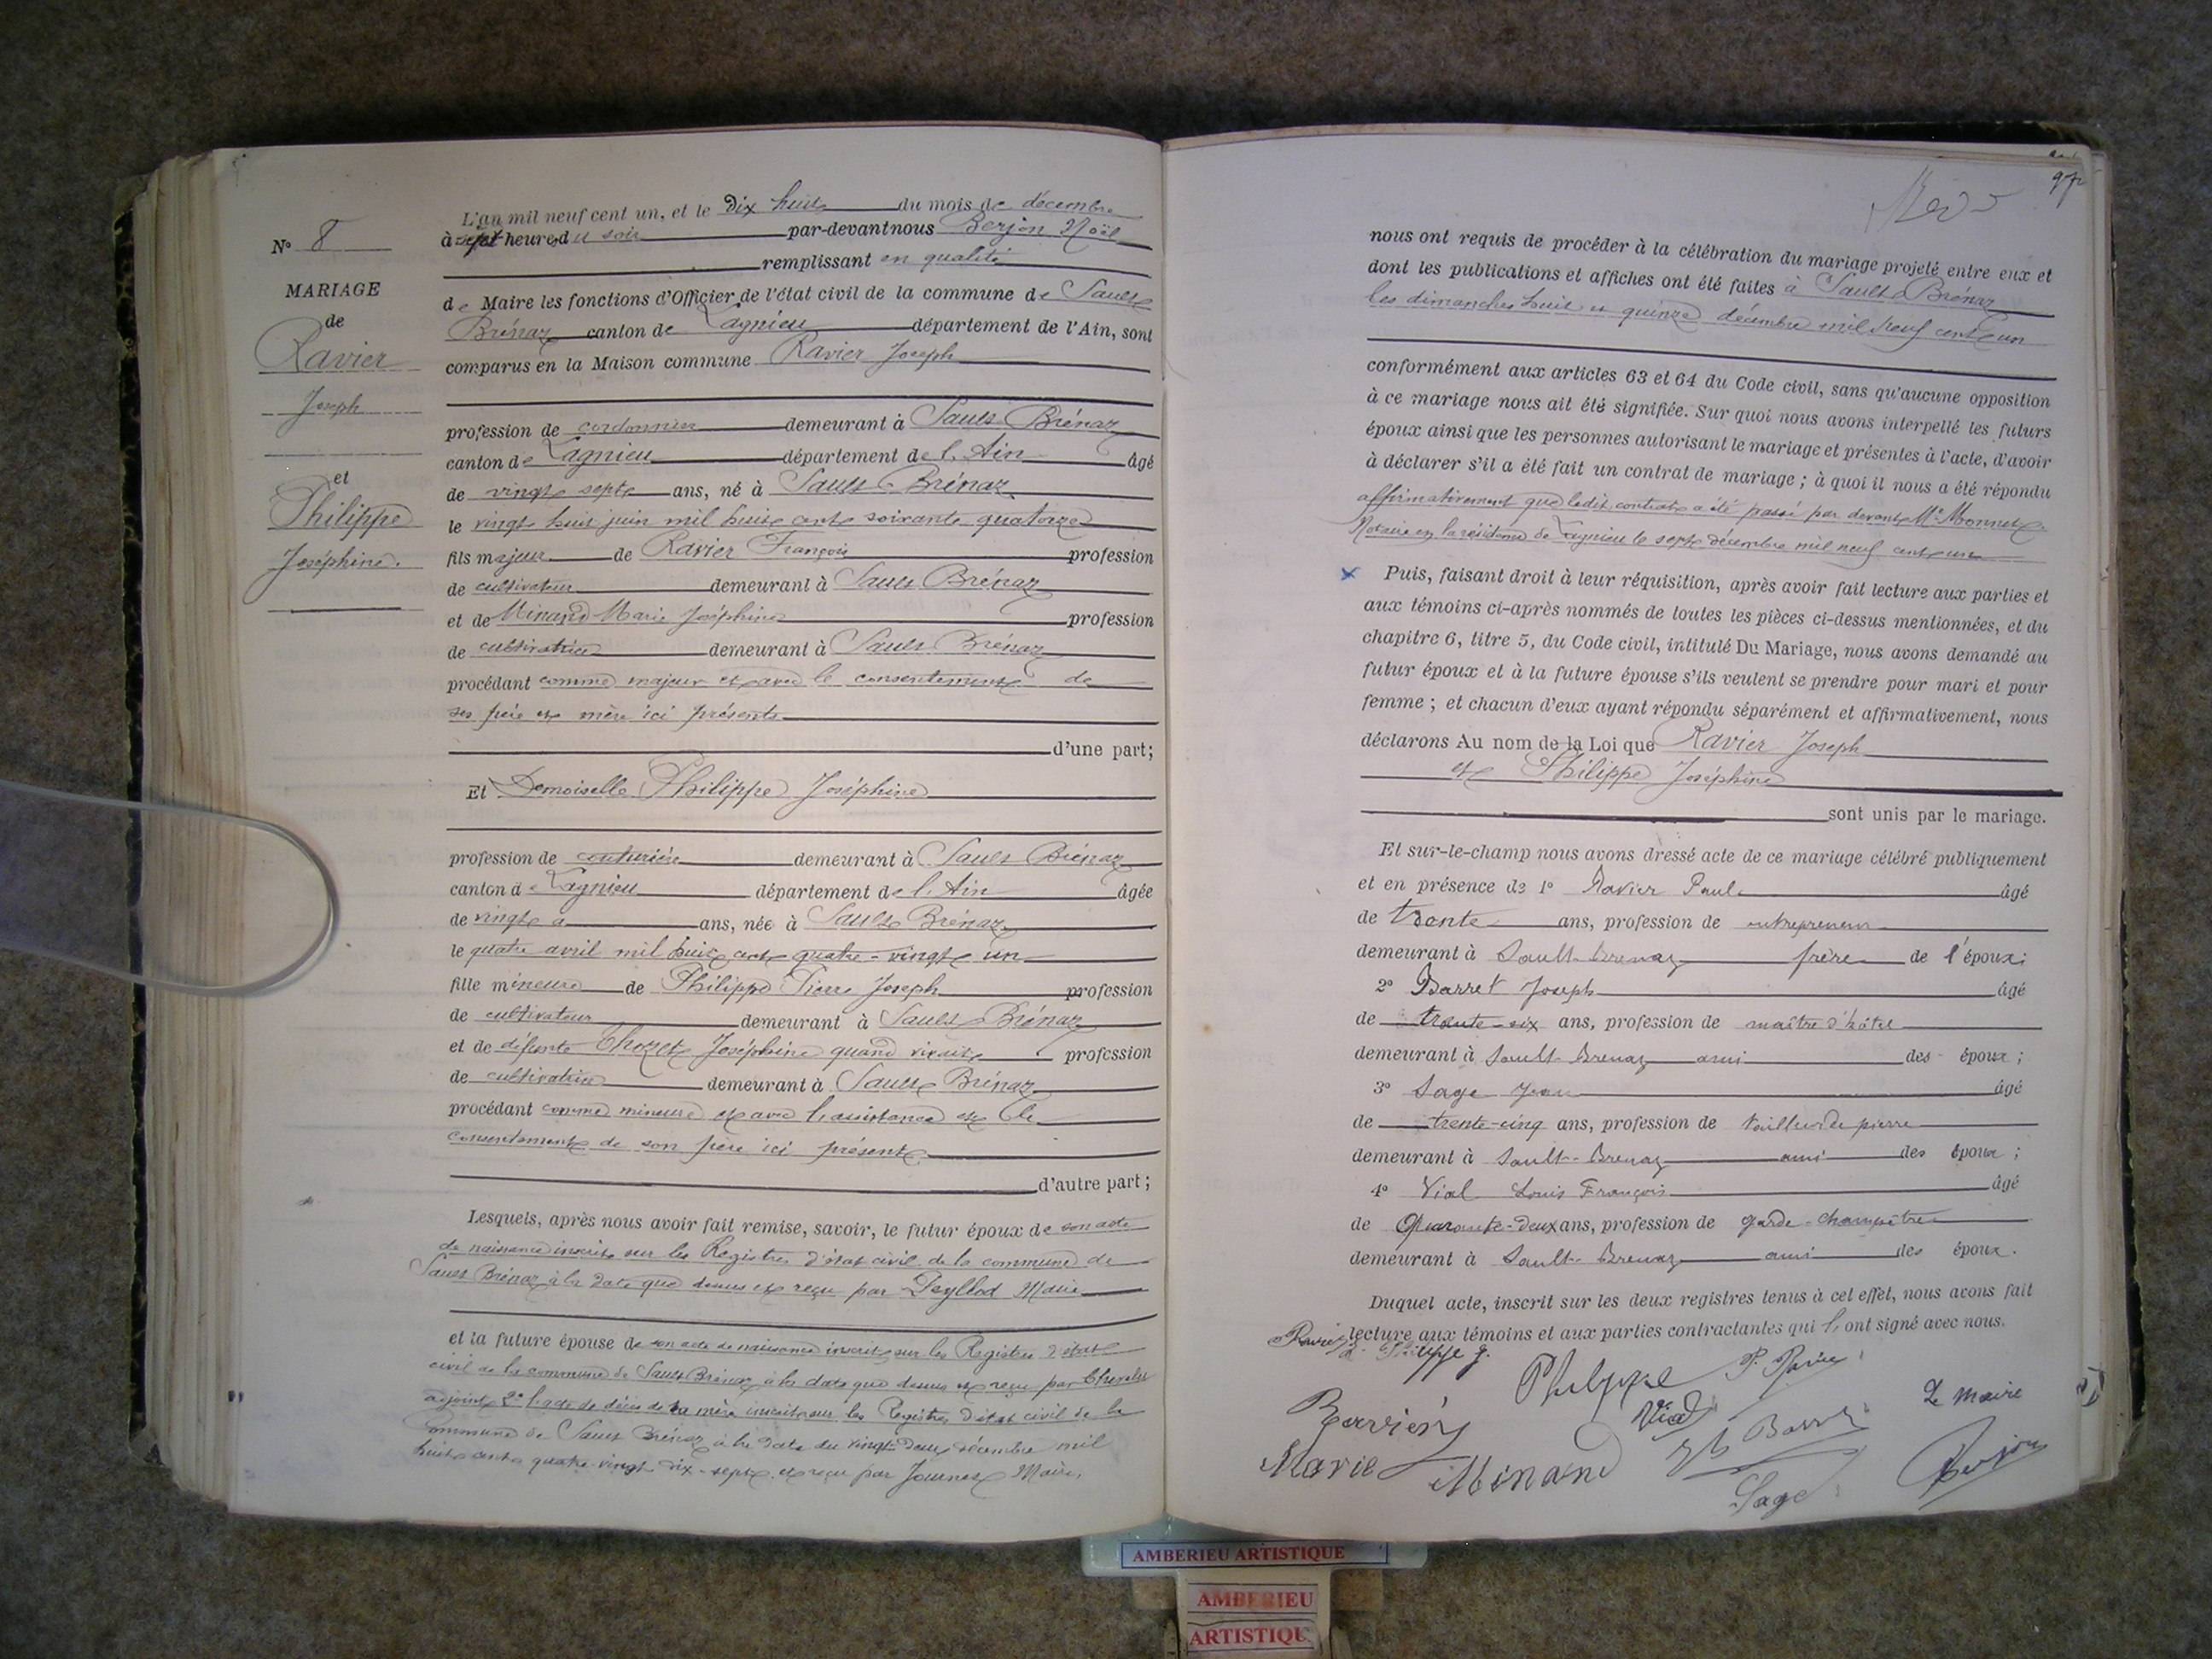 N° 8
MARIAGE
de
Ravier
Joseph
et
Philippe
Joséphine.
L'an mil neuf cent un, et le dix huit du mois de décembre
à sept heures du soir par-devant nous Berjon Noël
remplissant en qualité
de Maire les fonctions d'Officier de l'état civil de la commune de Sault
Brénaz canton de Lagnieu département de l'Ain, sont
comparus en la Maison commune Ravier Joseph
profession de cordonnier demeurant à Sault Brénaz
canton de Lagnieu département de l'Ain âgé
de vingt sept ans, né à Sault Brénaz
le vingt huit juin mil huit cent soixante quatorze
fils majeur de Ravier François profession
de cultivateur demeurant à Sault Brénaz
et de Minand Marie Joséphine profession
de cultivatrice demeurant à Sault Brénaz
procédant comme majeur et avec le consentement de
ses père et mère ici présents
d'une part;
Et Demoiselle Philippe Joséphine
profession de couturière demeurant à Sault Brénaz
canton de Lagnieu département de l'Ain âgée
de vingt ans, née à Sault Brénaz
le quatre avril mil huit cent quatre-vingt un
fille mineure de Philippe Pierre Joseph profession
de cultivateur demeurant à Sault Brénaz
et de défunte Joséphine quand vivait profession
de cultivatrice demeurant à Sault Brénaz
procédant comme mineure et avec l'assistance et le
consentement de son père ici présent
d'autre part;
Lesquels, après nous avoir fait remise, savoir, le futur époux de son acte
de naissance inscrit sur les Registres d'état civil de la commune de
Sault Brénaz à la date que dessus et reçu par Maire
et la future épouse de son acte de naissance inscrit sur les Registres d'état
civil de la commune de Sault Brénaz à la date que dessus et reçu par
adjoint, 2° l'acte de décès de sa mère inscrit sur les Registres d'état civil de la
Commune de Sault Brénaz à la date du vingt-deux décembre mil
huit cent quatre-vingt dix-sept et reçu par Maire,
97
nous ont requis de procéder à la célébration du mariage projeté entre eux et
dont les publications et affiches ont été faites à Sault Brénaz
les dimanches huit et quinze décembre mil neuf cent un
conformément aux articles 63 et 64 du Code civil, sans qu'aucune opposition
à ce mariage nous ait été signifiée. Sur quoi nous avons interpellé les futurs
époux ainsi que les personnes autorisant le mariage et présentes à l'acte, d'avoir
à déclarer s'il a été fait un contrat de mariage ; à quoi il nous a été répondu
affirmativement que ledit contrat a été passé par devant Me Monnet
Notaire en la résidence de Lagnieu le sept décembre mil neuf cent un
Puis, faisant droit à leur réquisition, après avoir fait lecture aux parties et
aux témoins ci-après nommés de toutes les pièces ci-dessus mentionnées, et du
chapitre 6, titre 5, du Code civil, intitulé Du Mariage, nous avons demandé au
futur époux et à la future épouse s'ils veulent se prendre pour mari et pour
femme ; et chacun d'eux ayant répondu séparément et affirmativement, nous
déclarons Au nom de la Loi que Ravier Joseph
et Philippe Joséphine
sont unis par le mariage.
Et sur-le-champ nous avons dressé acte de ce mariage célébré publiquement
et en présence de 1° Ravier Paul âgé
de trente ans, profession de entrepreneur
demeurant à Sault-Brenaz frère de l'époux;
2° Barret Joseph âgé
de trente-six ans, profession de maître d'hôtel
demeurant à Sault-Brenaz ami des époux ;
3° Sage Jean âgé
de trente-cinq ans, profession de tailleur de pierre
demeurant à Sault-Brenaz ami des époux ;
4° Vial Louis François âgé
de Quarante-deux ans, profession de garde-champêtre
demeurant à Sault-Brenaz ami des époux.
Duquel acte, inscrit sur les deux registres tenus à cet effet, nous avons fait
lecture aux témoins et aux parties contractantes qui l'ont signé avec nous.
Philippe J.
P. Ravier
Vial
Le maire
Marie Minand
Sage
Berjon
AMBERIEU ARTISTIQUE
AMBERIEU
ARTISTIQU